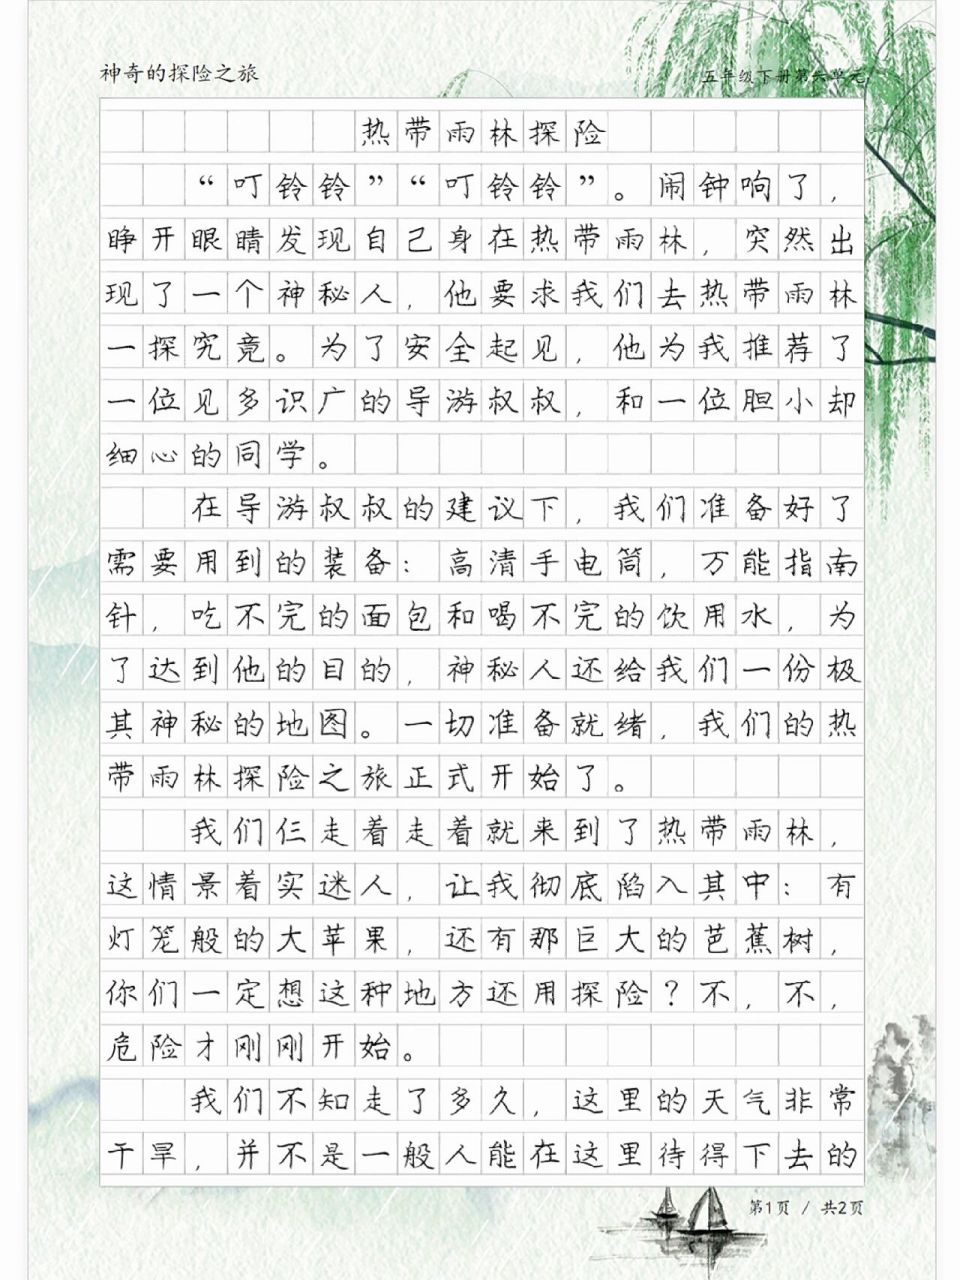 神奇的探险之旅
五年级下册第六单元
热带雨林探险
“叮铃铃”“叮铃铃”。闹钟响了，
睁开眼睛发现自己身在热带雨林，突然出
现了一个神秘人，他要求我们去热带雨林
一探究竟。为了安全起见，他为我推荐了
一位见多识广的导游叔叔，和一位胆小却
细心的同学。
在导游叔叔的建议下，我们准备好了
需要用到的装备：高清手电筒，万能指南
针，吃不完的面包和喝不完的饮用水，为
了达到他的目的，神秘人还给我们一份极
其神秘的地图。一切准备就绪，我们的热
带雨林探险之旅正式开始了。
我们仨走着走着就来到了热带雨林，
这情景着实迷人，让我彻底陷入其中：有
灯笼般的大苹果，还有那巨大的芭蕉树，
你们一定想这种地方还用探险？不，不，
危险才刚刚开始。
我们不知走了多久，这里的天气非常
干旱，并不是一般人能在这里待得下去的
第1页 / 共2页